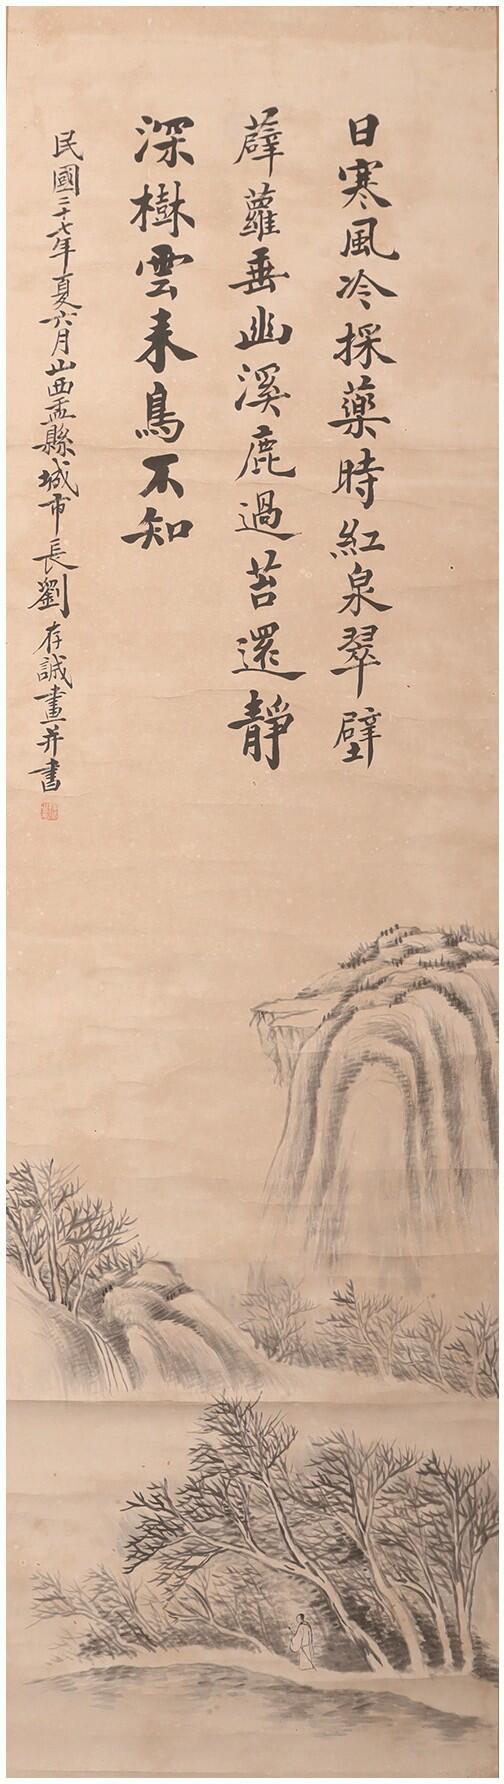 日寒風冷採藥時紅泉翠壁
薜蘿垂幽溪鹿過苔還靜
深樹雲来鳥不知
民國三十七年夏六月山西盂縣城市長劉存誠畫并書